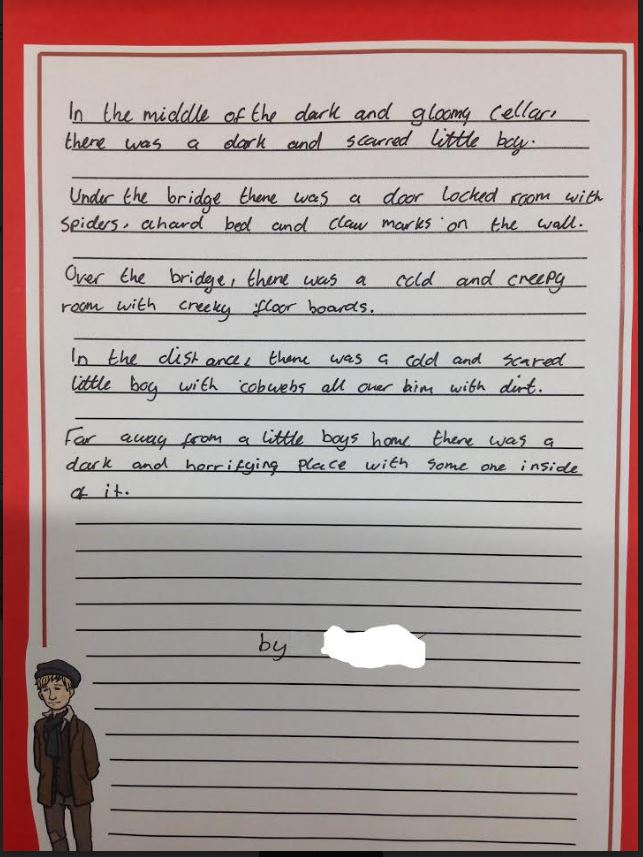 In the middle of the dark and gloomy cellar,
there was a dark and scarred little boy.
Under the bridge there was a door locked room with
spiders, a hard bed and claw marks on the wall.
Over the bridge, there was a cold and creepy
room with creeky floor boards.
In the distance, there was a cold and scared
little boy with cobwebs all over him with dirt.
Far away from a little boys home there was a
dark and horrifying place with some one inside
of it.
by